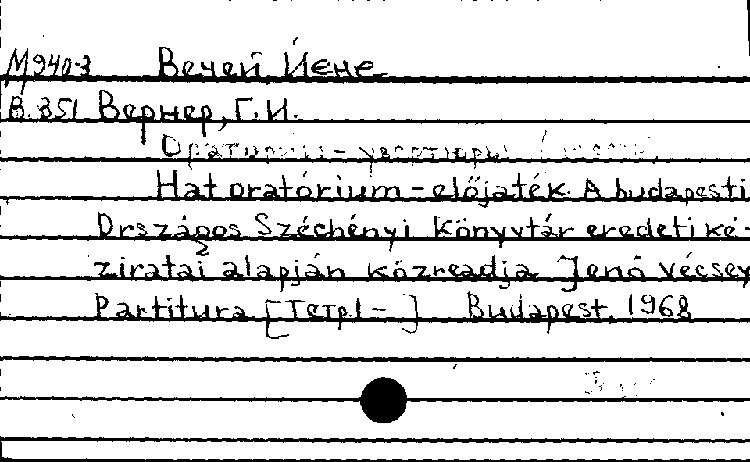 М940-3 Вечей, Йене
В.351 Вернер, Г.И.
Оратории - увертюры
Hat oratórium - előjáték. A budapesti
Országos Széchényi Könyvtár eredeti ké-
ziratai alapján közreadja Jenő Vécsey
Partitura [Тетр1 - ] Budapest, 1968